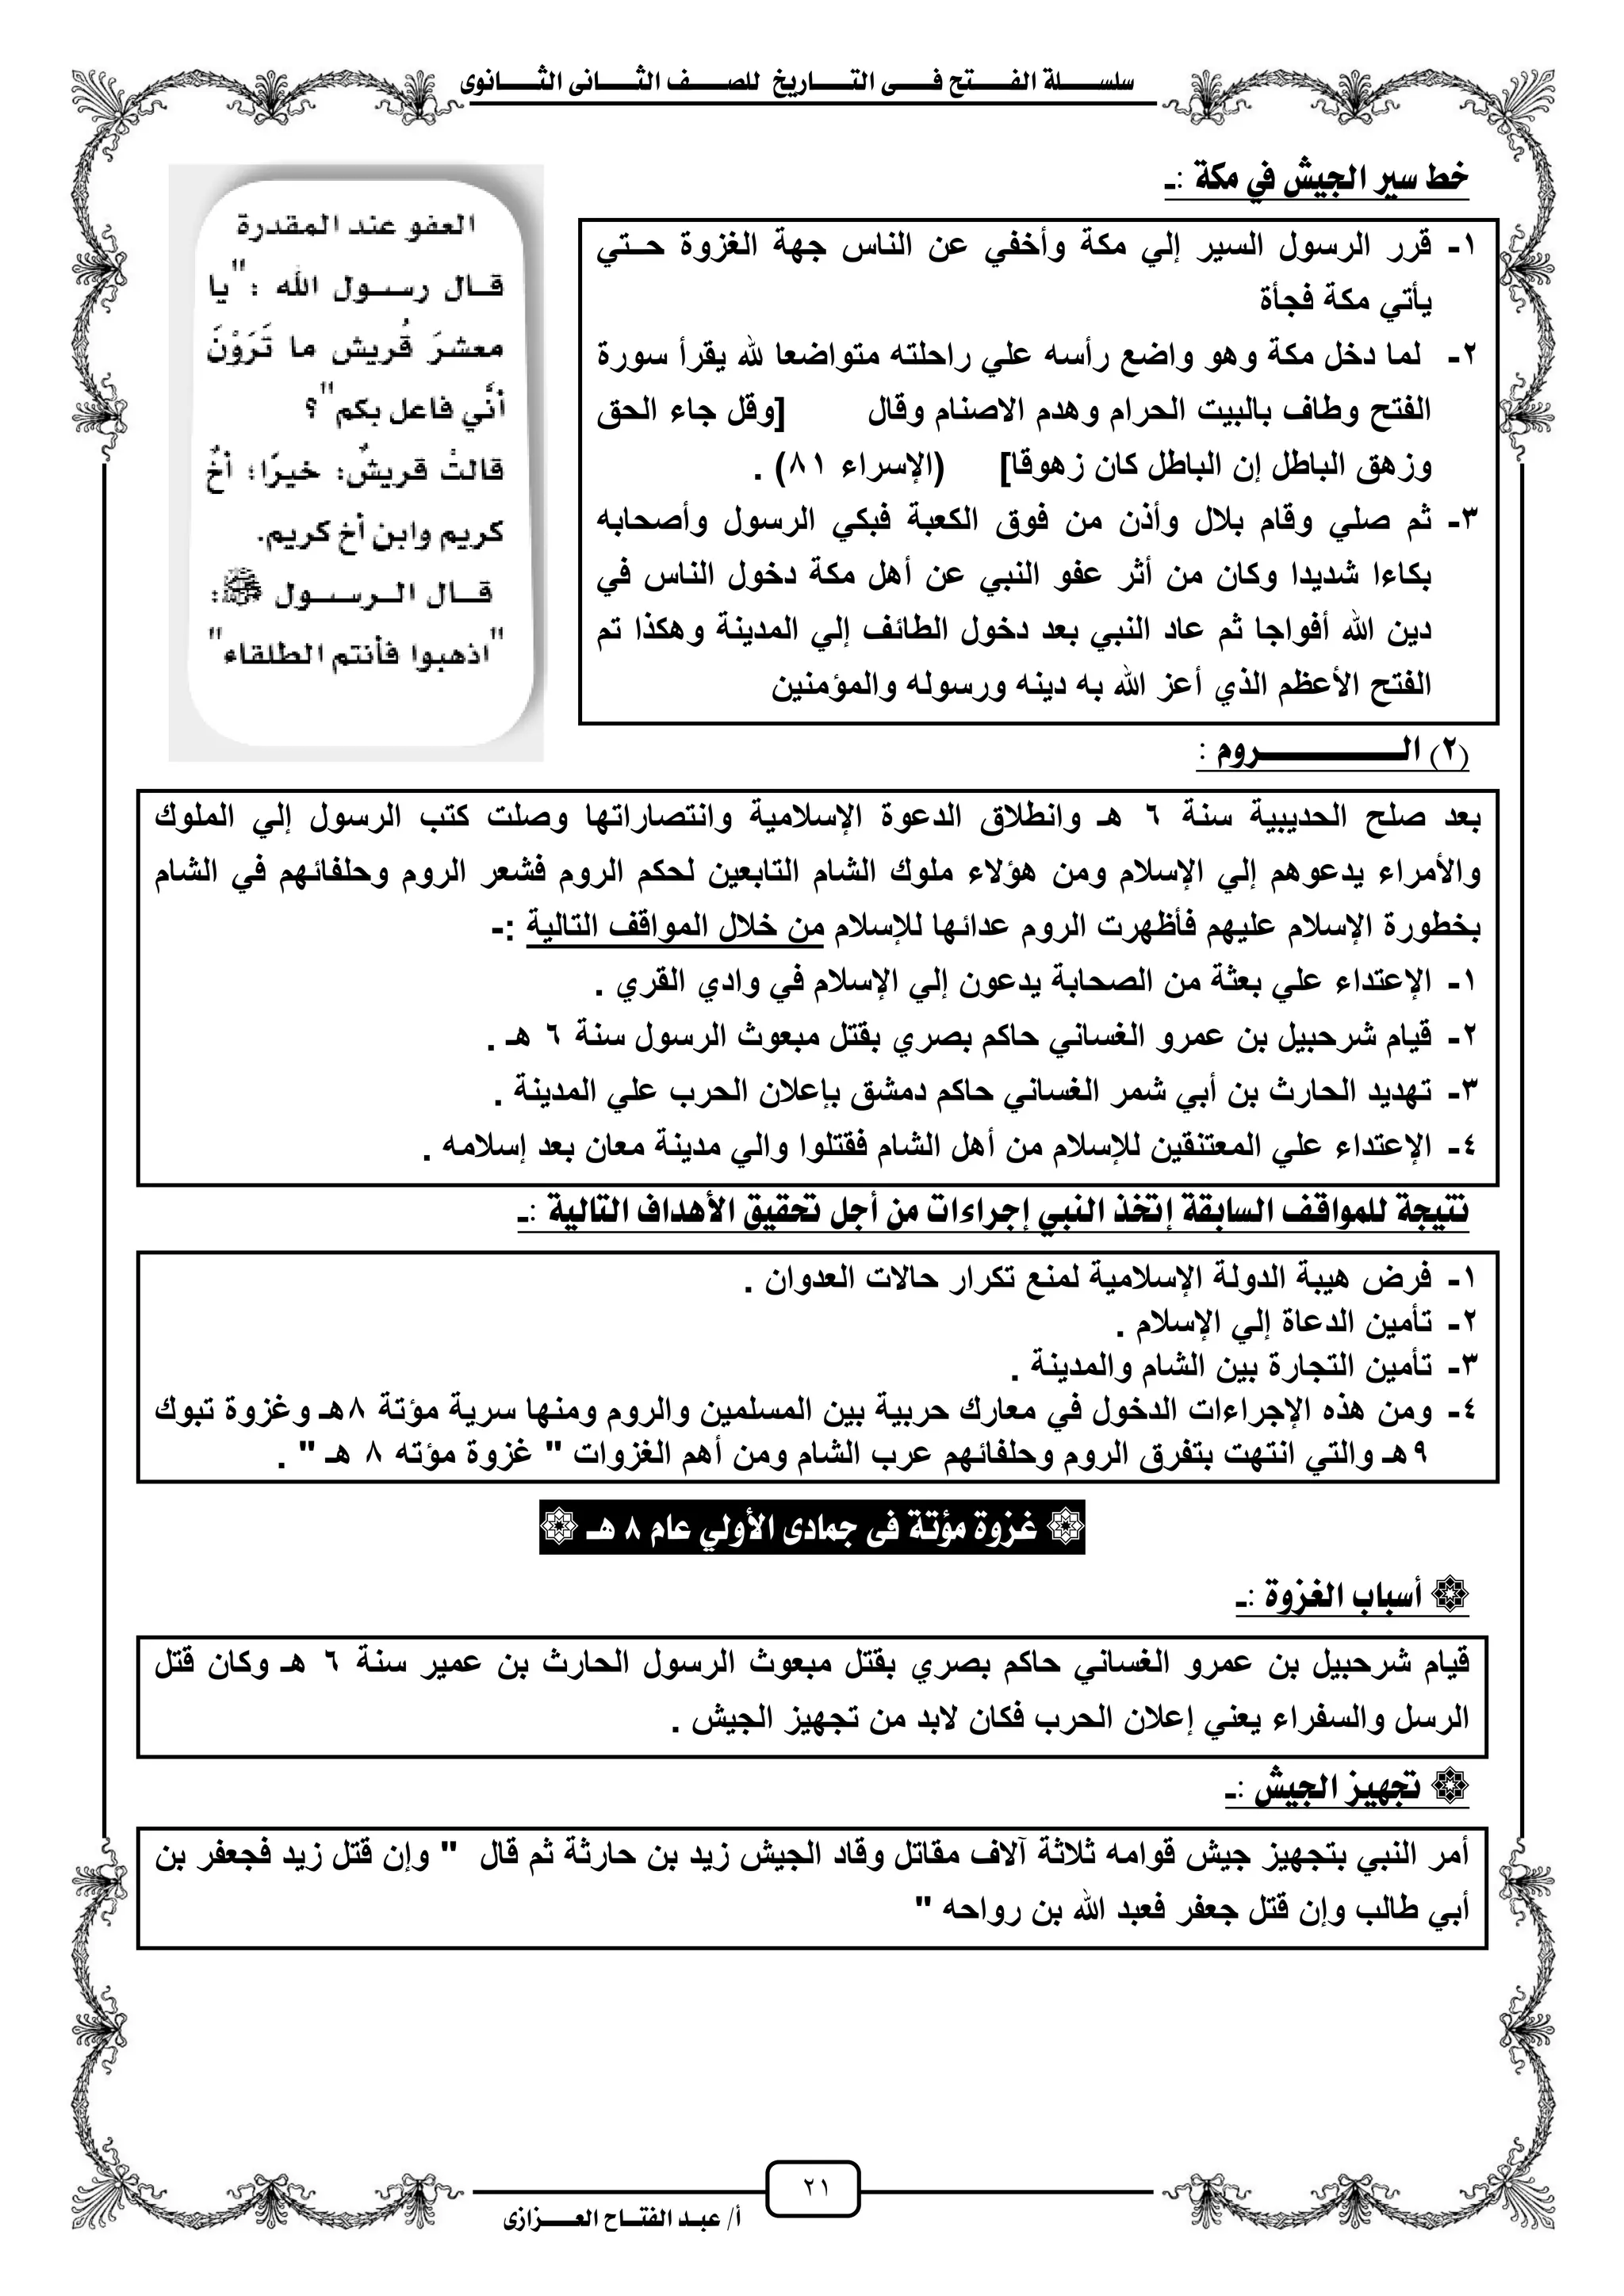 سلسلة الفتح فى التاريخ للصف الثانى الثانوى
خط سير الجيش في مكة :ـ
١- قرر الرسول السير إلي مكة وأخفي عن الناس جهة الغزوة حتي
يأتي مكة فجأة
٢- لما دخل مكة وهو واضع رأسه علي راحلته متواضعا لله يقرأ سورة
الفتح وطاف بالبيت الحرام وهدم الاصنام وقال [وقل جاء الحق
وزهق الباطل إن الباطل كان زهوقا] (الإسراء ٨١) .
٣- ثم صلي وقام بلال وأذن من فوق الكعبة فبكي الرسول وأصحابه
بكاءا شديدا وكان من أثر عفو النبي عن أهل مكة دخول الناس في
دين الله أفواجا ثم عاد النبي بعد دخول الطائف إلي المدينة وهكذا تم
الفتح الأعظم الذي أعز الله به دينه ورسوله والمؤمنين
العفو عند المقدرة
قال رسول الله : "يا
معشرَ قُريش ما تَرَوْنَ
أنَّي فاعل بكم"؟
قالتْ قريشٌ: خيرًا؛ أخٌ
كريم وابن أخ كريم.
قال الرسول ﷺ:
"اذهبوا فأنتم الطلقاء"
(٢) الروم :
بعد صلح الحديبية سنة ٦ هـ وانطلاق الدعوة الإسلامية وانتصاراتها وصلت كتب الرسول إلي الملوك
والأمراء يدعوهم إلي الإسلام ومن هؤلاء ملوك الشام التابعين لحكم الروم فشعر الروم وحلفائهم في الشام
بخطورة الإسلام عليهم فأظهرت الروم عدائها للإسلام من خلال المواقف التالية :-
١- الإعتداء علي بعثة من الصحابة يدعون إلي الإسلام في وادي القري .
٢- قيام شرحبيل بن عمرو الغساني حاكم بصري بقتل مبعوث الرسول سنة ٦ هـ .
٣- تهديد الحارث بن أبي شمر الغساني حاكم دمشق بإعلان الحرب علي المدينة .
٤- الإعتداء علي المعتنقين للإسلام من أهل الشام فقتلوا والي مدينة معان بعد إسلامه .
نتيجة للمواقف السابقة إتخذ النبي إجراءات من أجل تحقيق الأهداف التالية :ـ
١- فرض هيبة الدولة الإسلامية لمنع تكرار حالات العدوان .
٢- تأمين الدعاة إلي الإسلام .
٣- تأمين التجارة بين الشام والمدينة .
٤- ومن هذه الإجراءات الدخول في معارك حربية بين المسلمين والروم ومنها سرية مؤتة ٨هـ وغزوة تبوك
٩هـ والتي انتهت بتفرق الروم وحلفائهم عرب الشام ومن أهم الغزوات " غزوة مؤته ٨ هـ " .
غزوة مؤتة فى جمادى الأولي عام ٨ هـ
أسباب الغزوة :ـ
قيام شرحبيل بن عمرو الغساني حاكم بصري بقتل مبعوث الرسول الحارث بن عمير سنة ٦ هـ وكان قتل
الرسل والسفراء يعني إعلان الحرب فكان لابد من تجهيز الجيش .
تجهيز الجيش :ـ
أمر النبي بتجهيز جيش قوامه ثلاثة آلاف مقاتل وقاد الجيش زيد بن حارثة ثم قال " وإن قتل زيد فجعفر بن
أبي طالب وإن قتل جعفر فعبد الله بن رواحه "
٢١
أ/ عبد الفتاح العزازى